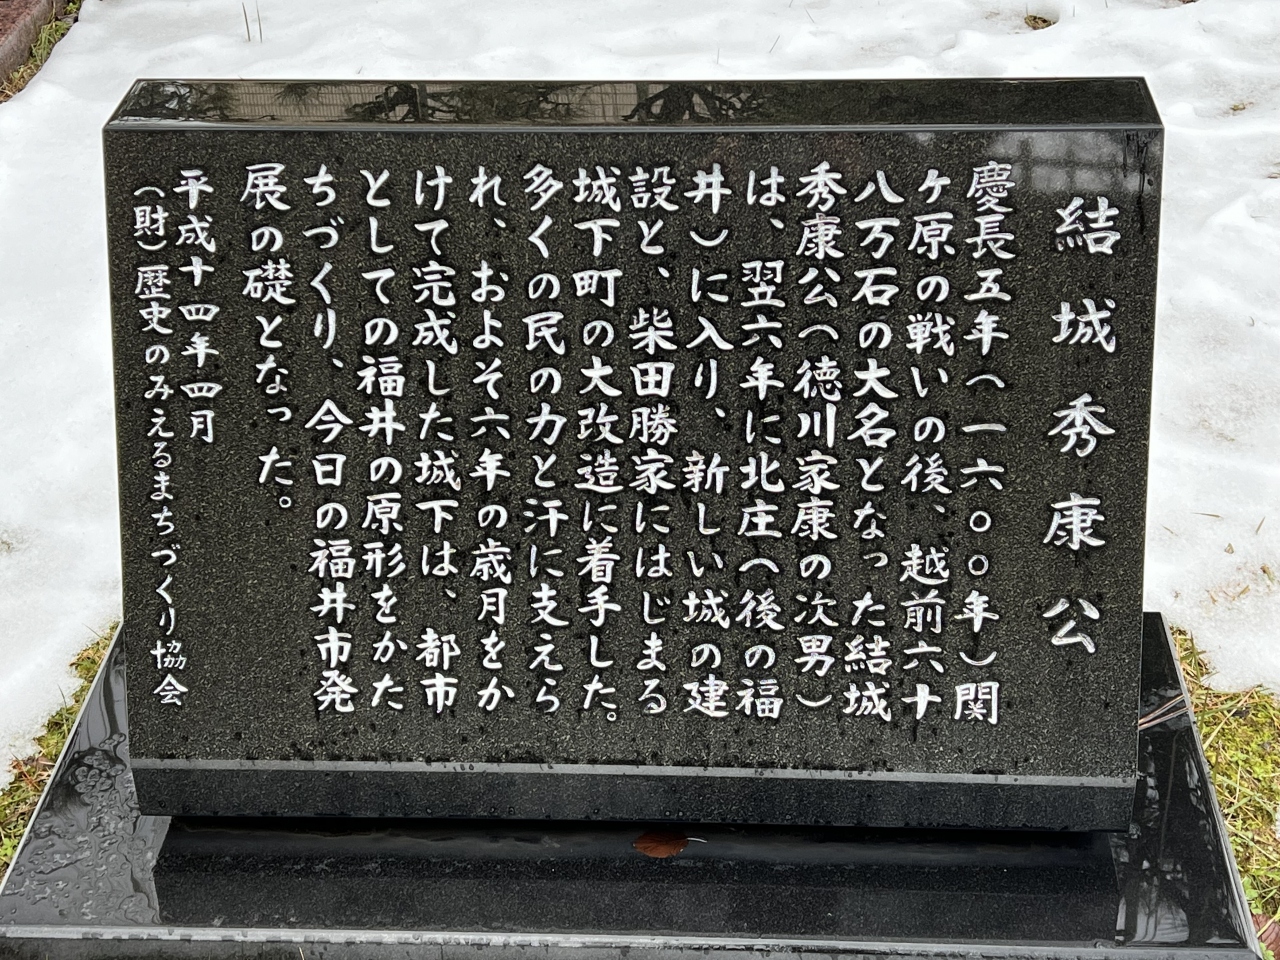 結城秀康公
慶長五年(一六〇〇年)関
ケ原の戦いの後、越前六十
八万石の大名となった結城
秀康公(徳川家康の次男)
は、翌六年に北庄(後の福
井)に入り、新しい城の建
設と、柴田勝家にはじまる
城下町の大改造に着手した。
多くの民の力と汗に支えら
れ、およそ六年の歳月をか
けて完成した城下は、都市
としての福井の原形をかた
ちづくり、今日の福井市発
展の礎となった。
平成十四年四月
(財)歴史のみえるまちづくり協会